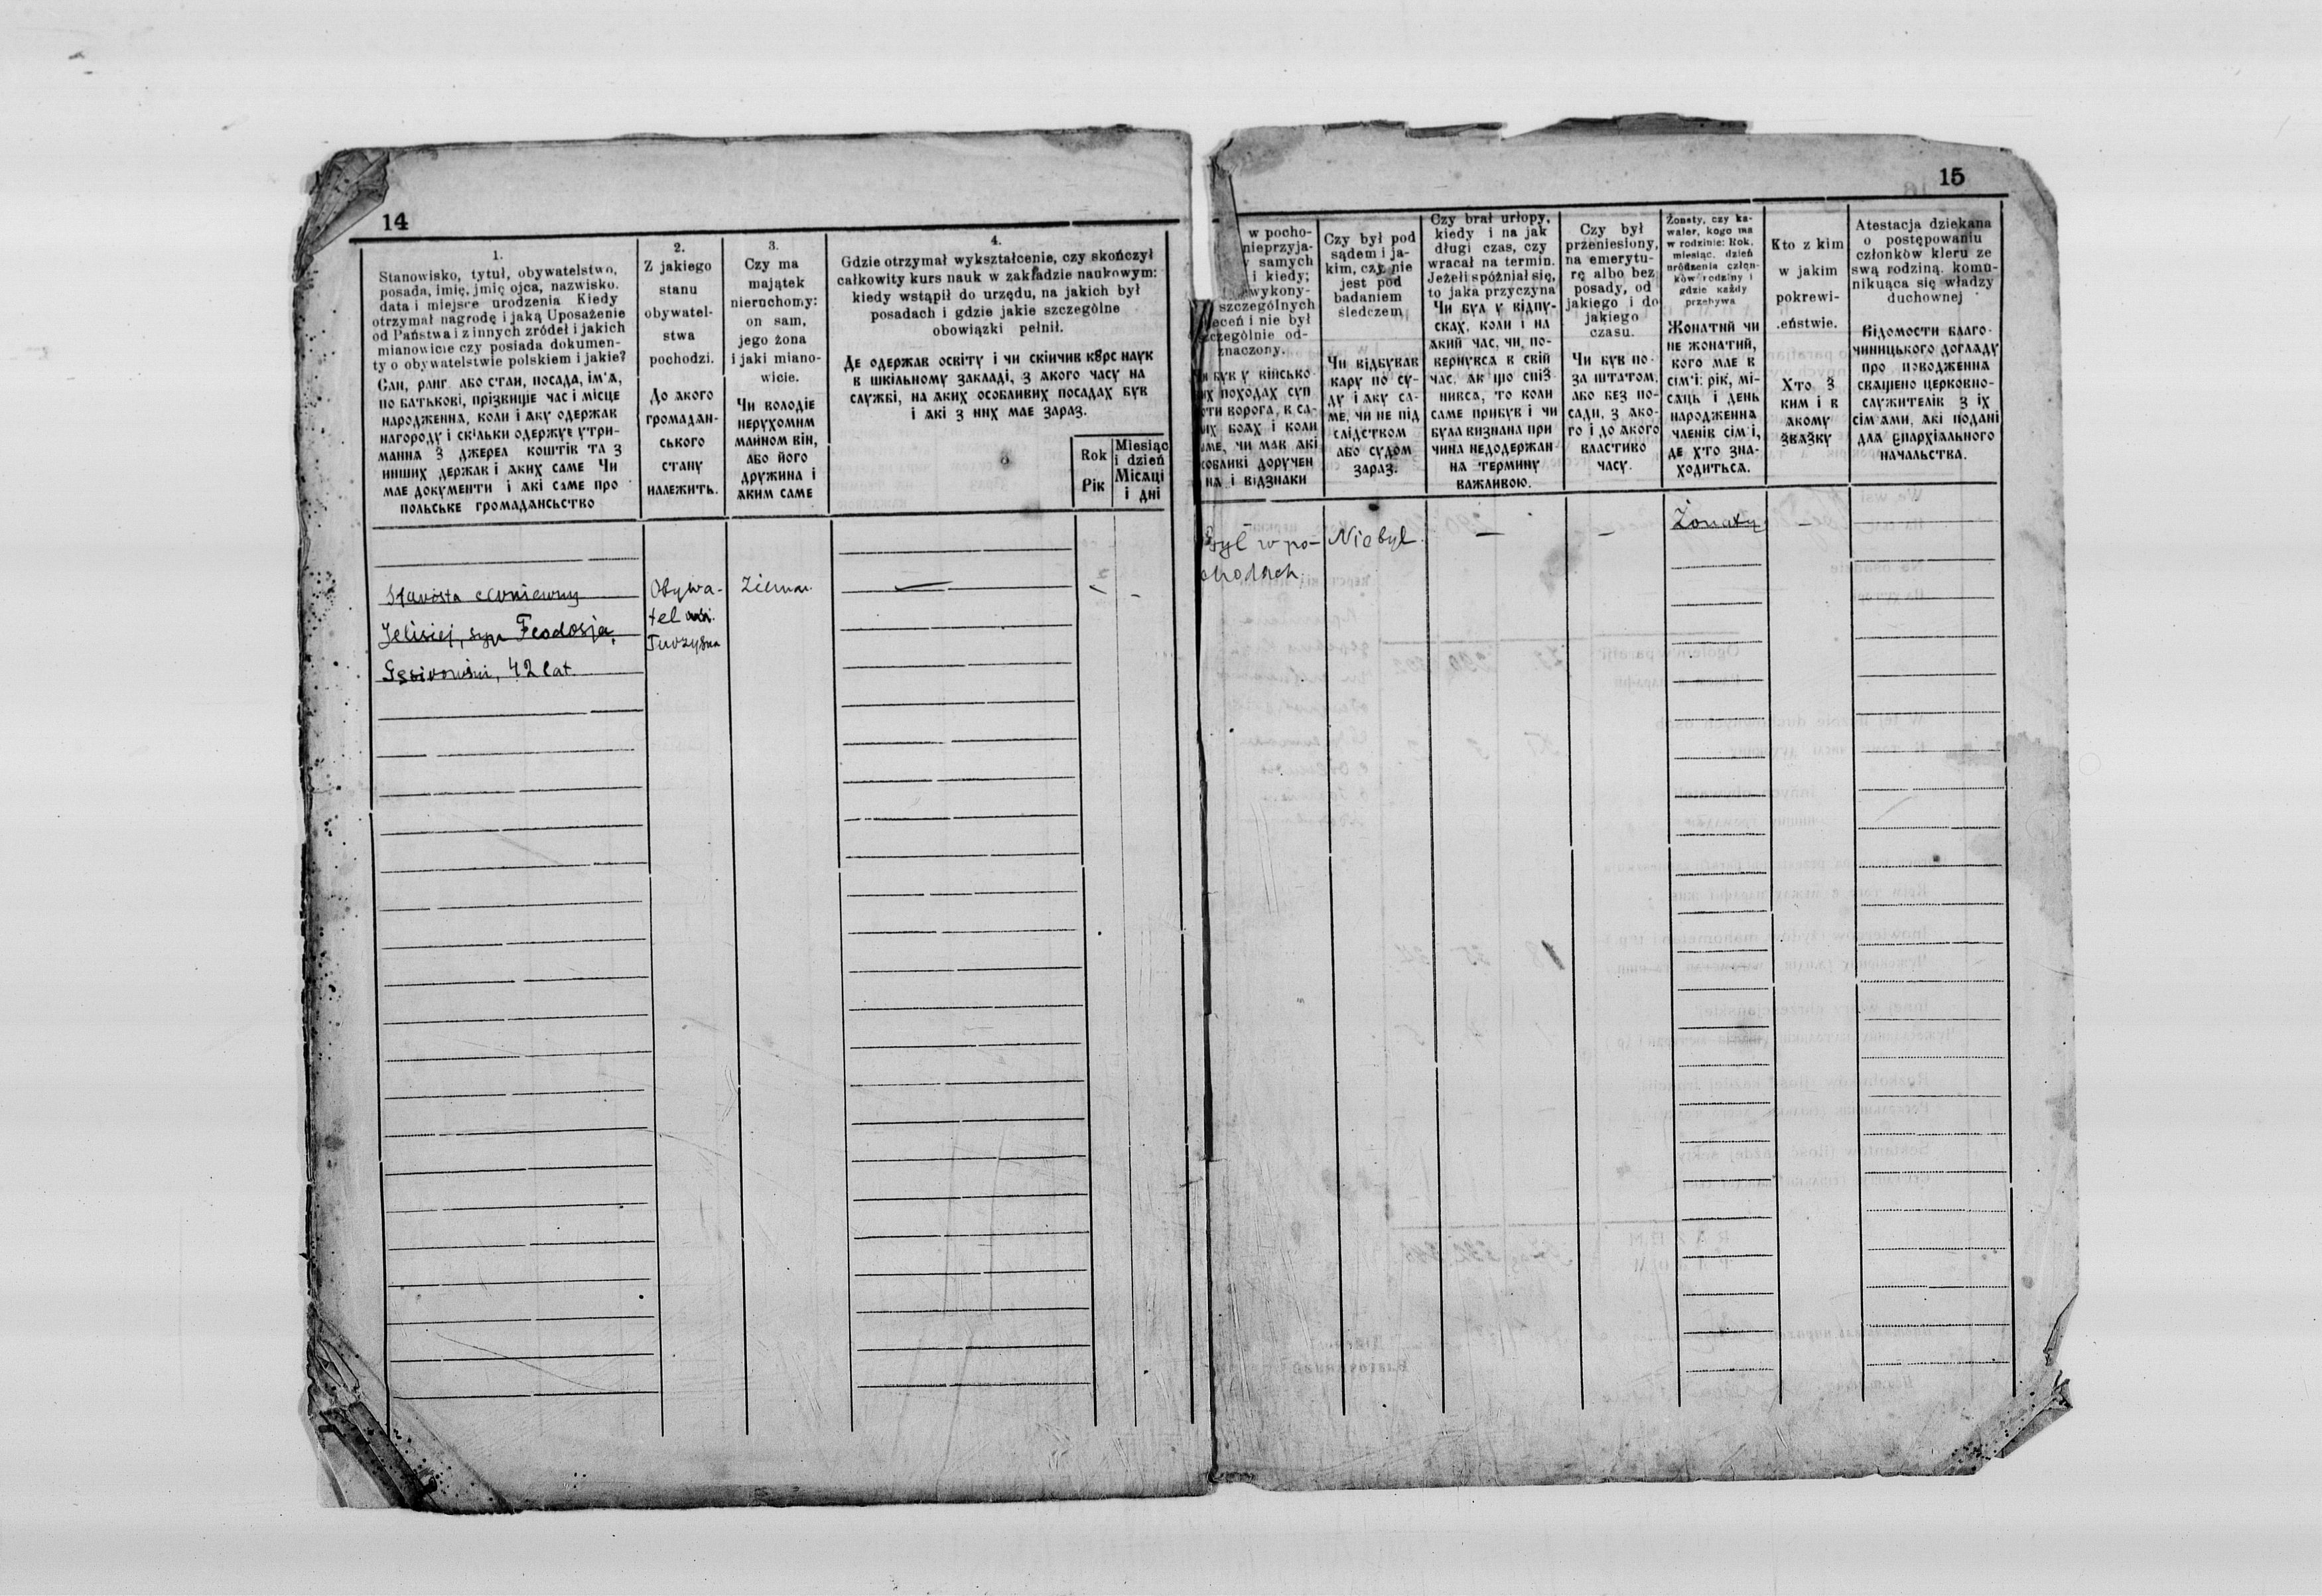 14
1.
Stanowisko, tytuł, obywatelstwo,
posada, imię, jmię ojca, nazwisko.
data i miejsce urodzenia Kiedy
otrzymał nagrodę i jaką Uposażenie
od Państwa i z innych źródeł i jakich
mianowicie czy posiada dokumen-
ty o obywatelstwie polskiem i jakie?
Сан, ранг або стан, посада, ім'я,
по батькові, прізвище час і місце
народження, коли і яку одержав
нагороду і скільки одержує утри-
мання з джерел коштів та з
инших держав і яких саме Чи
має документи і які саме про
польське громадянсьство
2.
Z jakiego
stanu
obywatel-
stwa
pochodzi.
До якого
громадян-
ського
стану
належить.
3.
Czy ma
majątek
nieruchomy:
on sam,
jego żona
i jaki miano-
wicie.
Чи володіє
нерухомим
майном він,
або його
дружина і
яким саме
4.
Gdzie otrzymał wykształcenie, czy skończył
całkowity kurs nauk w zakładzie naukowym:
kiedy wstąpił do urzędu, na jakich był
posadach i gdzie jakie szczególne
obowiązki pełnił.
Де одержав освіту і чи скінчив кȣрс наук
в шкільному закладі, з якого часу на
службі, на яких особливих посадах був
і які з них має зараз.
Rok
Рік
Miesiąc
i dzień
Місяці
і дні
Starosta cerkiewny
Jelisiej, syn Feodosja,
42 lat.
Obywa-
tel wsi
Turzyska
Ziemia.
15
w pocho-
nieprzyja-
w samych
i kiedy;
wykony-
szczególnych
leceń i nie był
szczególnie od-
znaczony.
Чи був у військо-
их походах суп
оти ворога, в са-
их боях і коли
аме, чи мав які
собливі доручен
ня і відзнаки
Czy był pod
sądem i ja-
kim, czy nie
jest pod
badaniem
śledczem
Чи відбував
кару по су-
ду і яку са-
ме, чи не під
слідством
або судом
зараз.
Czy brał urlopy,
kiedy i na jak
długi czas, czy
wracał na termin.
Jeżeli spóźniał się,
to jaka przyczyna
Чи був у відпу-
сках, коли і на
який час, чи по-
вернувся в свій
час, як що спіз
нився, то коли
саме прибув і чи
була визнана при
чина недодержан-
ня терміну
важливою.
Czy był
przeniesiony,
na emerytu-
rę albo bez
posady, od
jakiego i do
jakiego
czasu.
Чи був по-
за штатом,
або без по-
сади, з яко-
го і до якого
властиво
часу.
Żonaty, czy ka-
waler, kogo ma
w rodzinie: Rok,
miesiąc, dzień
urodzenia człon-
ków rodziny i
gdzie każdy
przebywa
Жонатий чи
не жонатий,
кого має в
сім'і: рік, мі-
сяць і день
народження
членів сім'і,
де хто зна-
ходиться.
Kto z kim
w jakim
pokrewi-
eństwie.
Хто з
ким і в
якому
звязку
Atestacja dziekana
o postępowaniu
członków kleru ze
swą rodziną. komu-
nikująca się władzy
duchownej
Відомости благо-
чинницького догляду
про поводження
священо церковно-
служителів з їх
сім'ями, які подані
для єпархіяльного
начальства.
Był w po-
chodach.
Nie był.
Żonaty